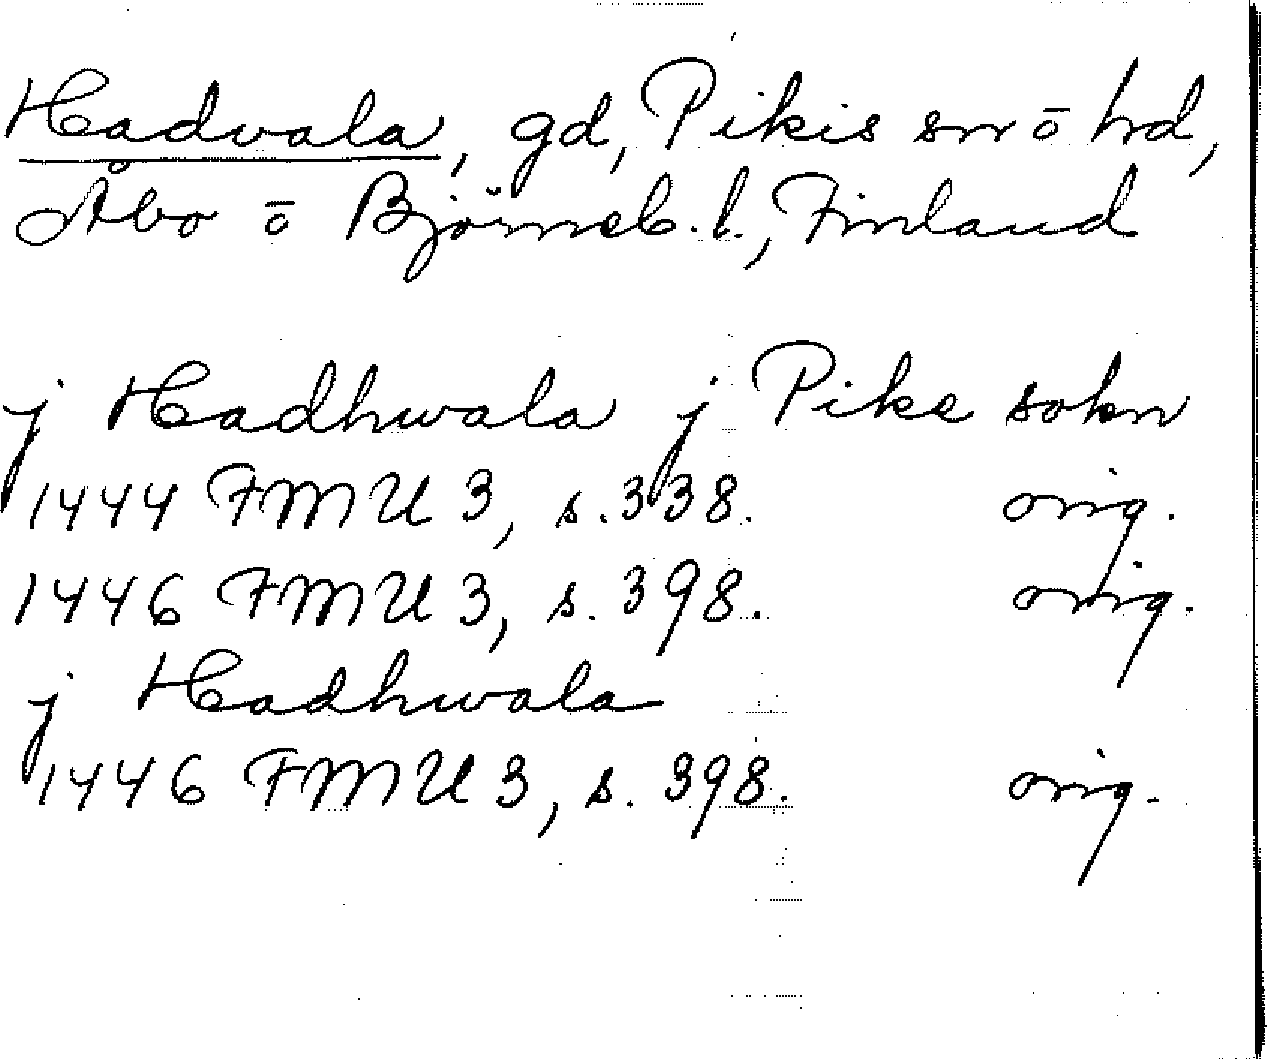 Hadvala, gd, Pikis sn ō hd,
Åbo ō Björneb. l., Finland
j Hadhwala j Pike sokn
1444 FMU 3, s. 338. orig.
1446 FMU 3, s. 398. orig.
j Hadhwala
1446 FMU 3, s. 398. orig.